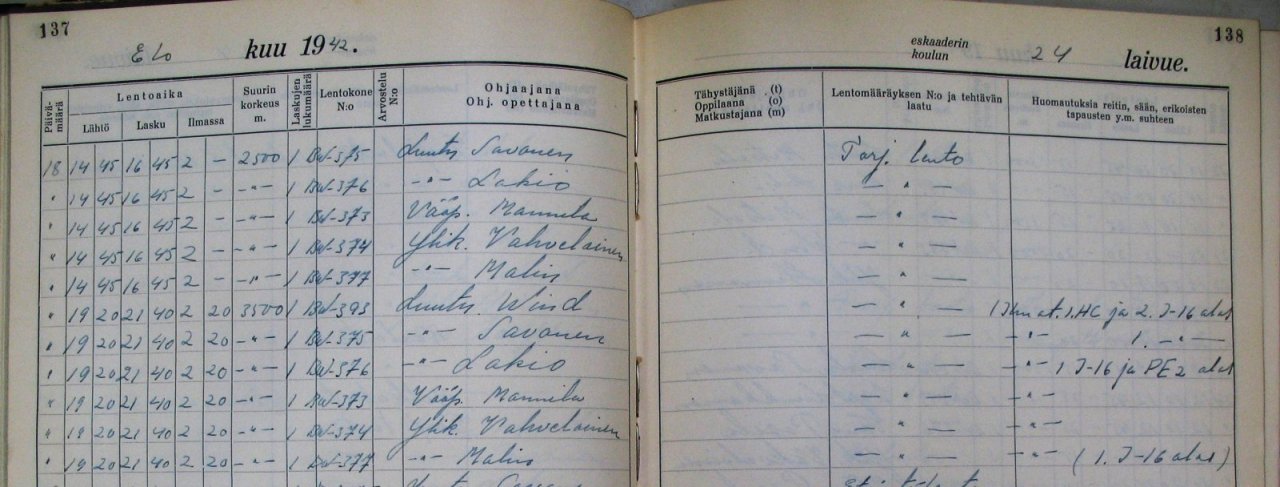 137
Elo kuu 1942.
Päivämäärä Lentoaika Lähtö Lasku Ilmassa Suurin korkeus m. Laskujen lukumäärä Lentokone N:o Arvostelu N:o Ohjaajana Ohj. opettajana
18 14 45 16 45 2 — 2500 1 BW-375 Luutn. Savonen
" 14 45 16 45 2 — —"— 1 BW-376 —"— Lakio
" 14 45 16 45 2 — —"— 1 BW-373 Vääp. Mannila
" 14 45 16 45 2 — —"— 1 BW-374 Ylik. Vahvelainen
" 14 45 16 45 2 — —"— 1 BW-377 —"— Malin
" 19 20 21 40 2 20 3500 1 BW-393 Luutn. Wind
" 19 20 21 40 2 20 —"— 1 BW-375 —"— Savonen
" 19 20 21 40 2 20 —"— 1 BW-376 —"— Lakio
" 19 20 21 40 2 20 —"— 1 BW-373 Vääp. Mannila
" 19 20 21 40 2 20 —"— 1 BW-374 Ylik. Vahvelainen
" 19 20 21 40 2 20 —"— 1 BW-377 —"— Malin
138
eskaaderin
koulun 24 laivue.
Tähystäjänä (t) Oppilaana (o) Matkustajana (m) Lentomääräyksen N:o ja tehtävän laatu Huomautuksia reitin, sään, erikoisten tapausten y.m. suhteen
Torj. lento
— " —
— " —
— " —
— " —
— " — (Ilmat. 1. HC ja 2. I-16 alas
— " — —"— 1. —"—
— " — —"— 1 I-16 ja PE2 alas
— " — —"—
— " — —"—
— " — —"— (1. I-16 alas)